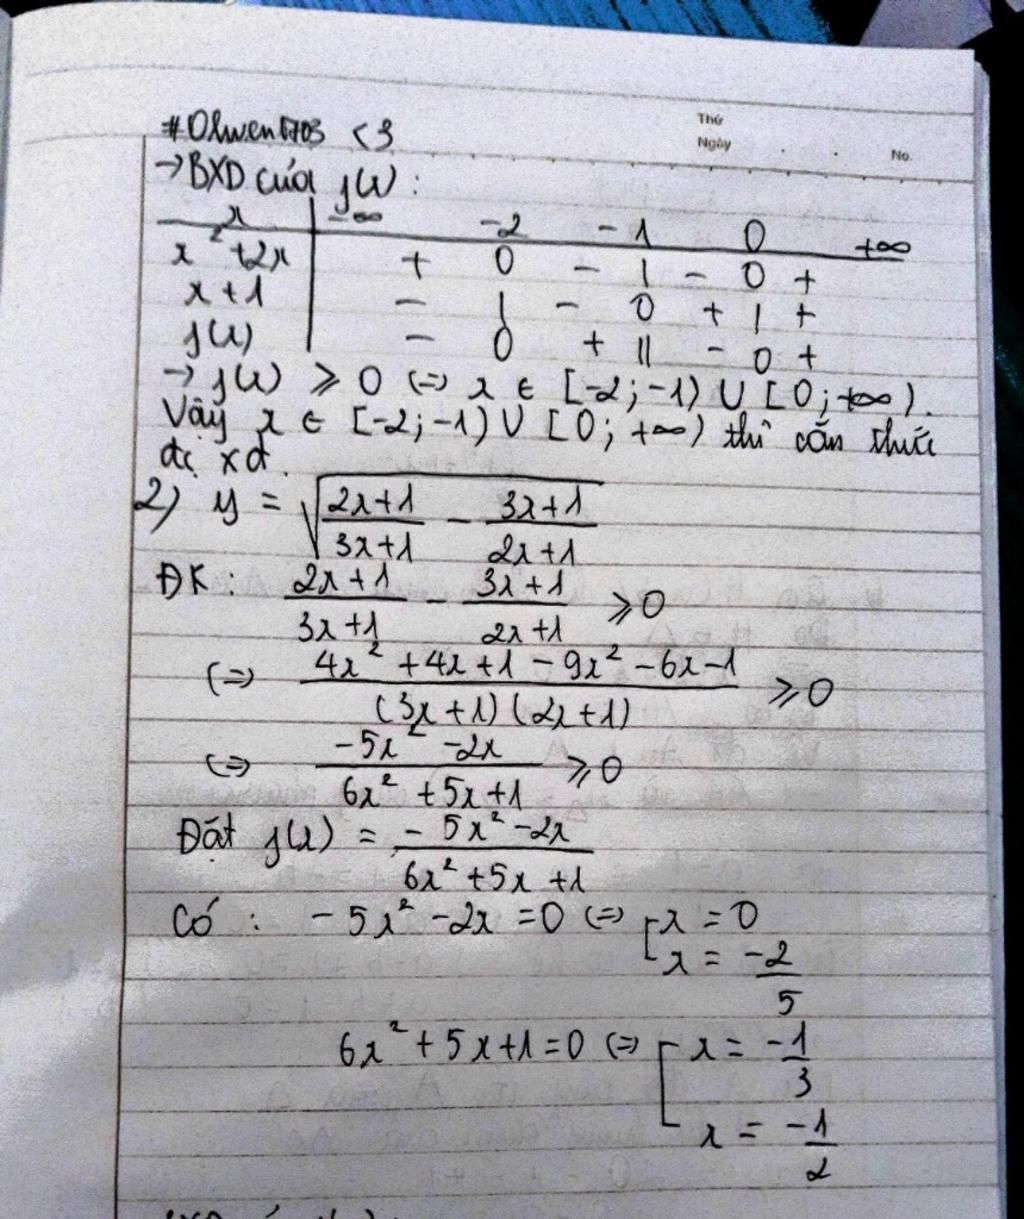 #Olwen1703 <3
Thứ
Ngày
No.
→ BXD của f(x) :
x | -∞ -2 -1 0 +∞
x² + 2x | + 0 - | - 0 +
x + 1 | - | - 0 + | +
f(x) | - 0 + || - 0 +
→ f(x) ≥ 0 (=) x ∈ [-2; -1) ∪ [0; +∞).
Vậy x ∈ [-2; -1) ∪ [0; +∞) thì căn thức
đc xđ.
2) y = √((2x+1)/(3x+1) - (3x+1)/(2x+1))
ĐK: (2x+1)/(3x+1) - (3x+1)/(2x+1) ≥ 0
(=) (4x² + 4x + 1 - 9x² - 6x - 1)/((3x+1)(2x+1)) ≥ 0
(=) (-5x² - 2x)/(6x² + 5x + 1) ≥ 0
Đặt f(x) = (-5x² - 2x)/(6x² + 5x + 1)
Có : -5x² - 2x = 0 (=) [ x = 0
x = -2/5
6x² + 5x + 1 = 0 (=) [ x = -1/3
x = -1/2